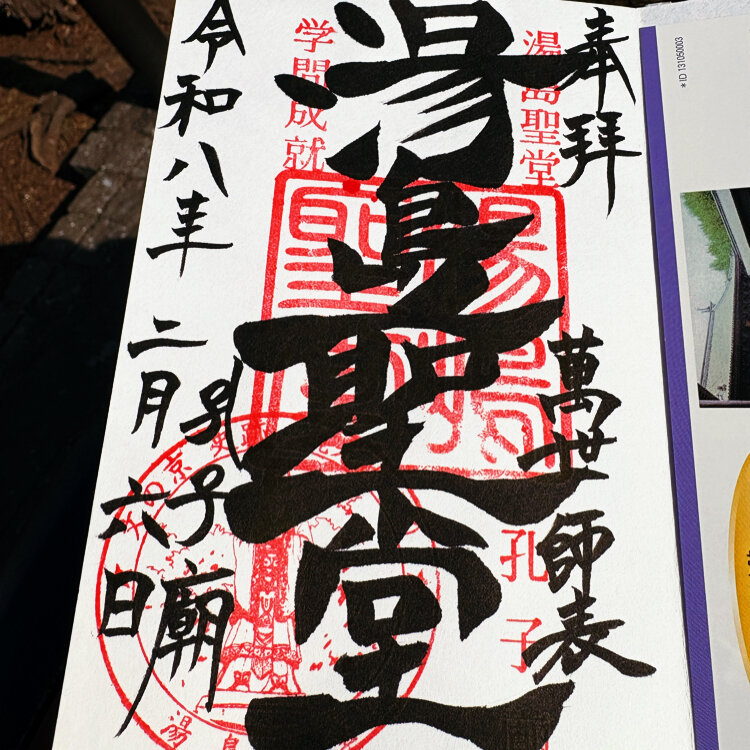 奉拝
湯島聖堂
萬世師表
孔子
湯島聖堂
学問成就
孔子廟
令和八年
二月六日
*ID 131050003